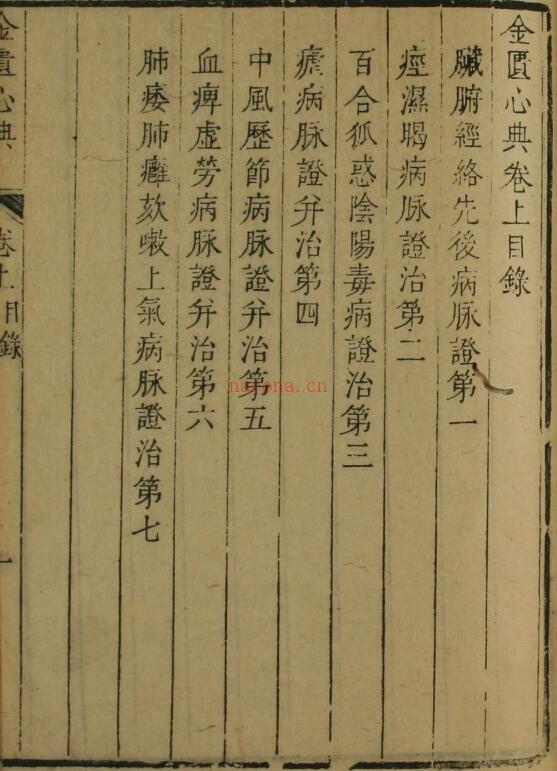 金匱心典卷上目錄
臟腑經絡先後病脉證第一
痙濕暍病脉證治第二
百合狐惑陰陽毒病證治第三
瘧病脉證并治第四
中風歷節病脉證并治第五
血痺虛勞病脉證并治第六
肺痿肺癰欬嗽上氣病脉證治第七
金匱心典 卷上目錄 一
nayona.cn